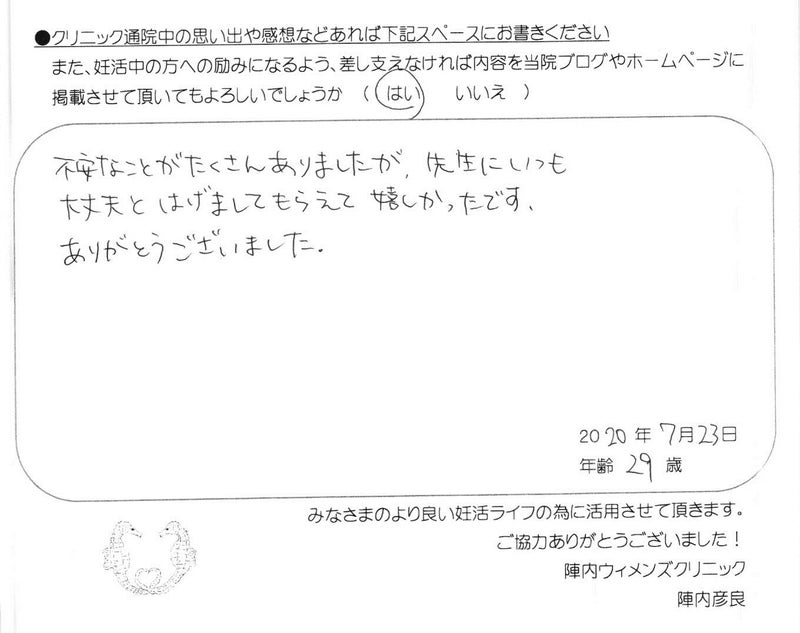 ●クリニック通院中の思い出や感想などあれば下記スペースにお書きください
また、妊活中の方への励みになるよう、差し支えなければ内容を当院ブログやホームページに
掲載させて頂いてもよろしいでしょうか（ はい　いいえ ）
不安なことがたくさんありましたが、先生にいつも
大丈夫と はげましてもらえて 嬉しかったです、
ありがとうございました。
2020年7月23日
年齢 29 歳
みなさまのより良い妊活ライフの為に活用させて頂きます。
ご協力ありがとうございました！
陣内ウィメンズクリニック
陣内彦良